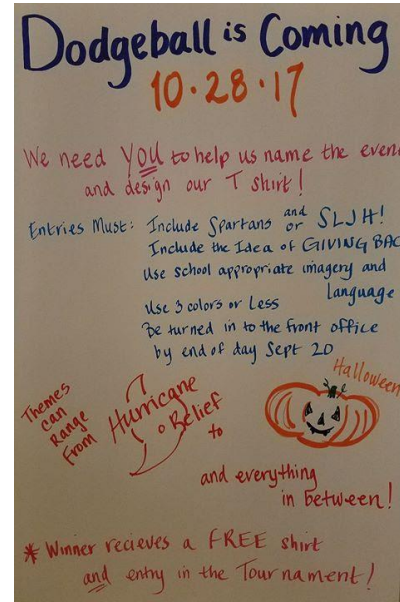 Dodgeball is Coming
10.28.17
We need YOU to help us name the even
and design our T shirt!
Entries Must: Include Spartans and or SLJH!
Include the Idea of GIVING BAC
Use school appropriate imagery and
Language
Use 3 colors or Less
Be turned in to the front office
by end of day Sept 20
Themes
can
Range
From
Hurricane
Relief
to
Halloween
and everything
in between!
* Winner recieves a FREE shirt
and entry in the Tournament!